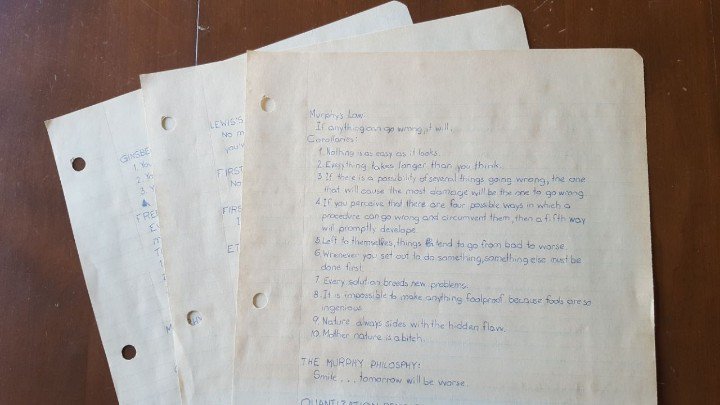 GINSBE
1. Yo
2. Yo
3. Y
FREE
LEWIS'S
No m
you'v
FIRST
No
FIRE
ET
Murphy's Law:
If anything can go wrong, it will.
Corollaries:
1. Nothing is as easy as it looks.
2. Everything takes longer than you think.
3. If there is a possibility of several things going wrong, the one
that will cause the most damage will be the one to go wrong.
4. If you perceive that there are four possible ways in which a
procedure can go wrong and circumvent them, then a fifth way
will promptly develope.
5. Left to themselves, things tend to go from bad to worse.
6. Whenever you set out to do something, something else must be
done first.
7. Every solution breeds new problems.
8. It is impossible to make anything foolproof because fools are so
ingenious.
9. Nature always sides with the hidden flaw.
10. Mother nature is a bitch.
THE MURPHY PHILOSPHY:
Smile . . . tomorrow will be worse.